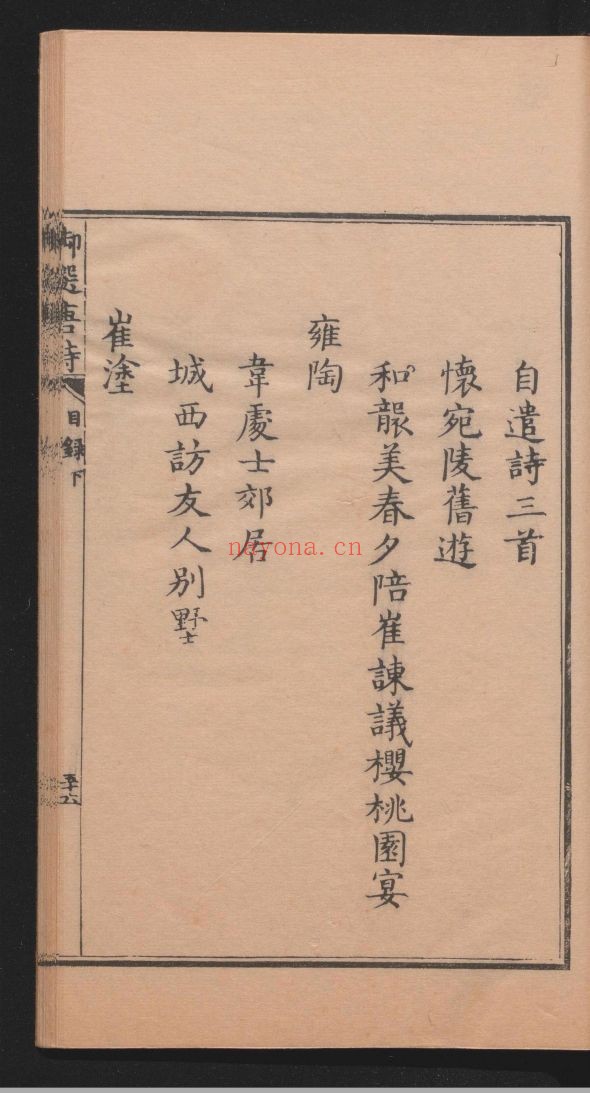 自遣詩三首
懷宛陵舊遊
和龍美春夕陪崔諫議櫻桃園宴
雍陶
韋處士郊居
城西訪友人別墅
崔塗
御選唐詩
目錄下
nayona.cn